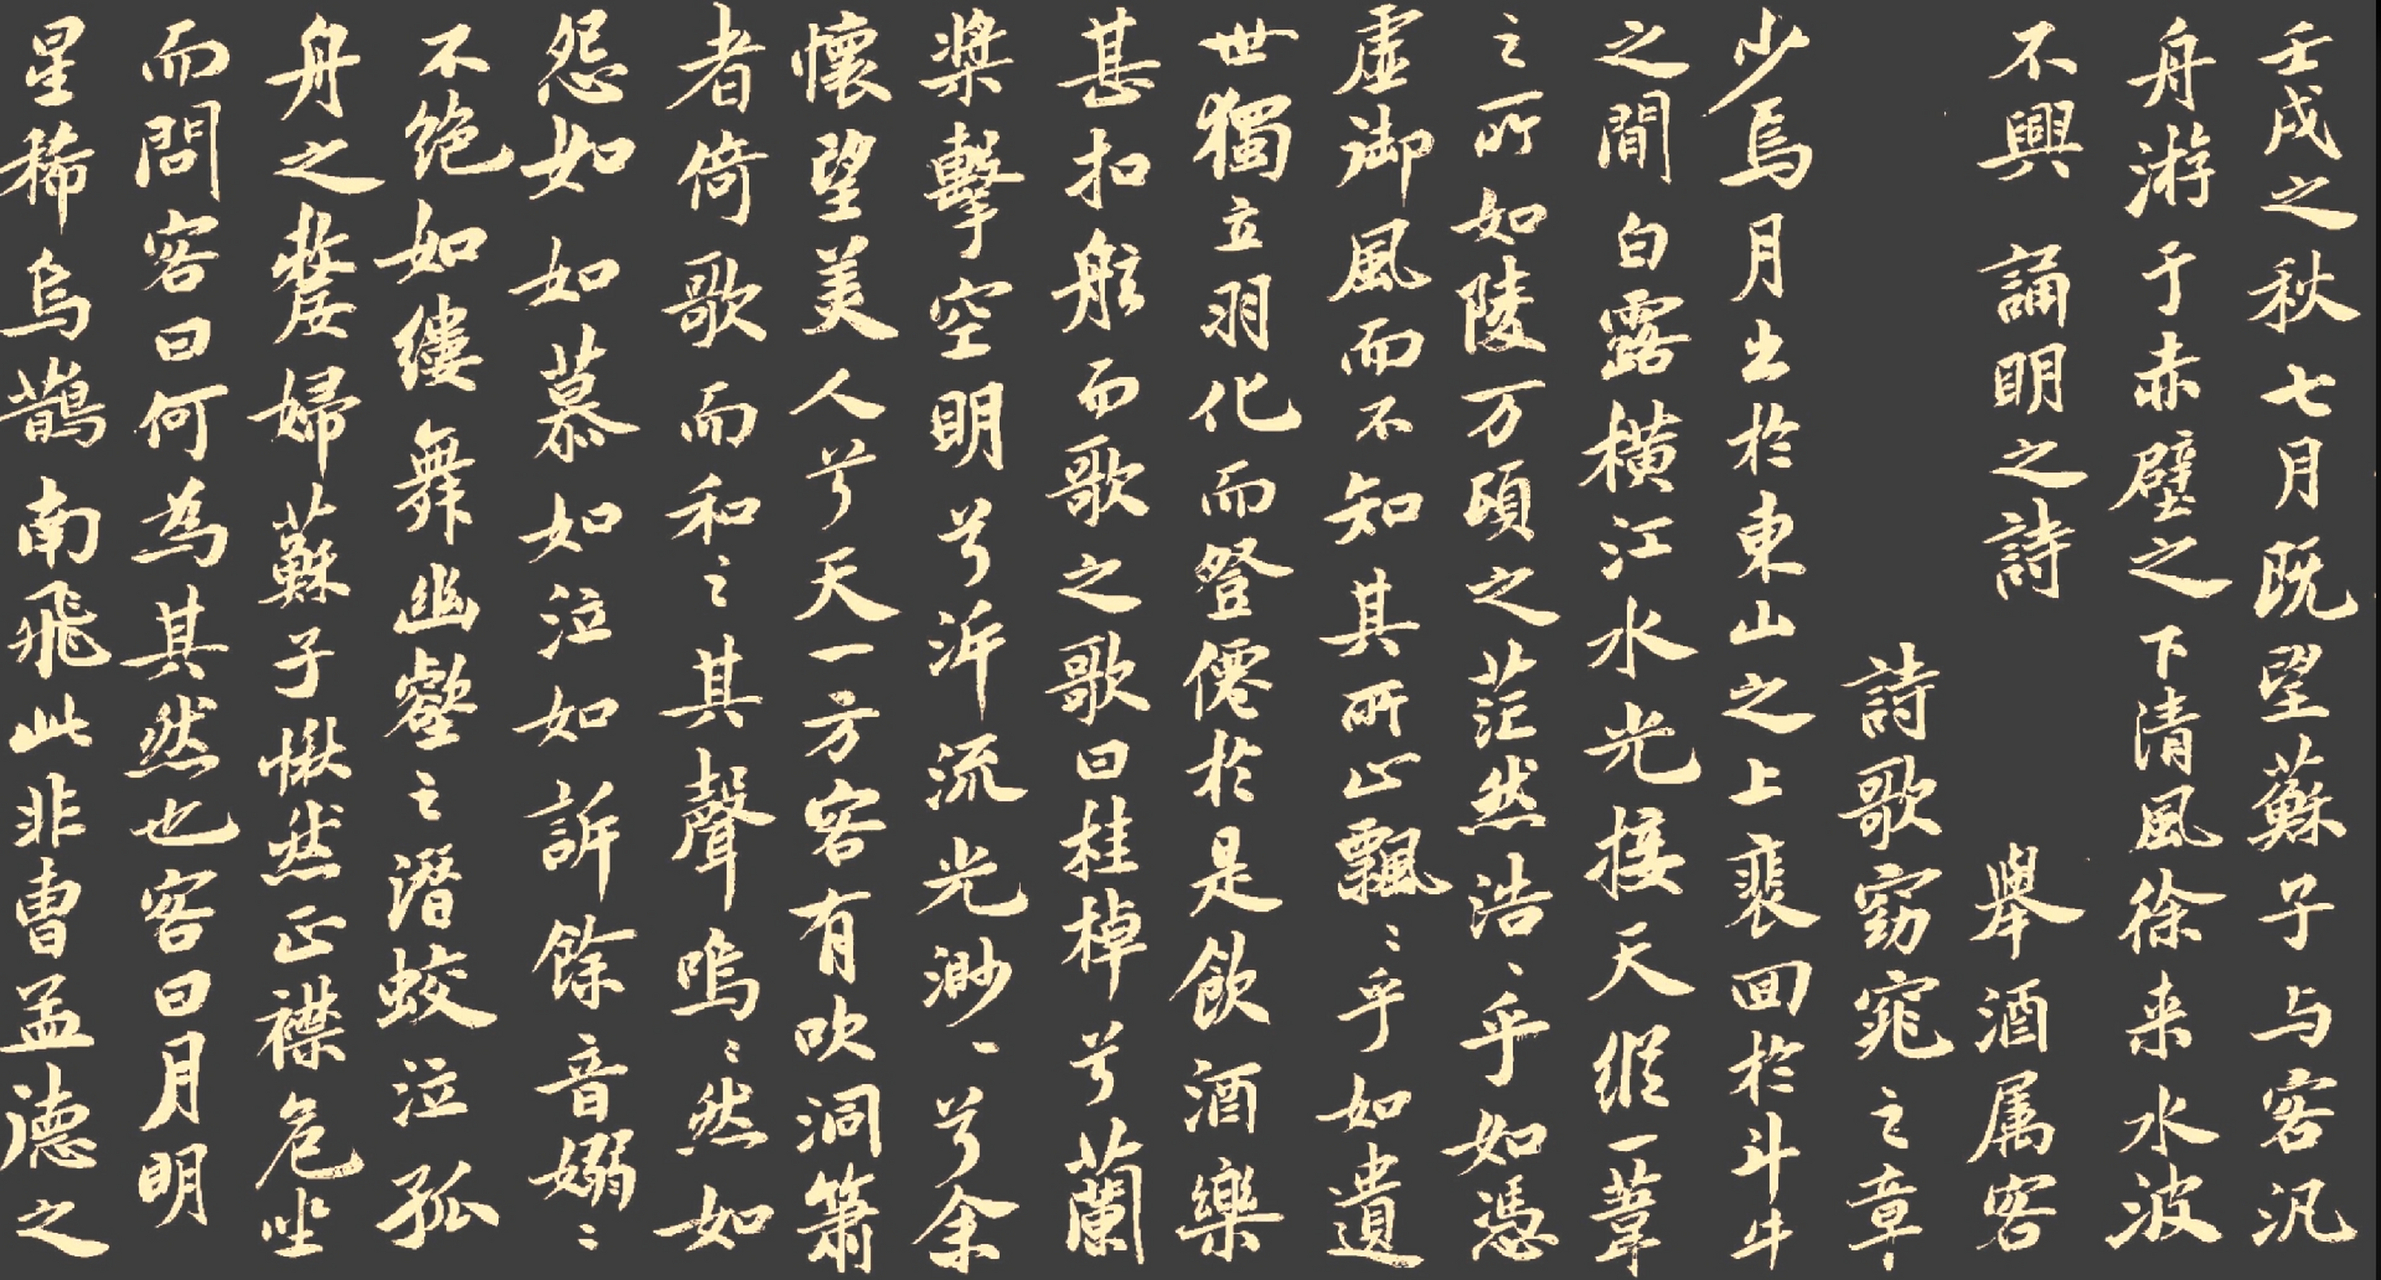 壬戌之秋七月既望蘇子与客汎
舟游于赤壁之下清風徐来水波
不興誦明之詩舉酒属客
詩歌窈窕之章
少焉月出於東山之上裴回於斗牛
之間白露橫江水光接天縱一葦
之所如陵万頃之茫然浩乎如憑
虛御風而不知其所止飄〻乎如遺
世獨立羽化而登僊於是飲酒樂
甚扣舷而歌之歌曰桂棹兮蘭
槳擊空明兮泝流光渺〻兮余
懷望美人兮天一方客有吹洞簫
者倚歌而和之其聲嗚〻然如
怨如如慕如泣如訴餘音嫋〻
不绝如縷舞幽壑之潛蛟泣孤
舟之嫠婦蘇子愀然正襟危坐
而問客曰何為其然也客曰月明
星稀烏鵲南飛此非曹孟德之